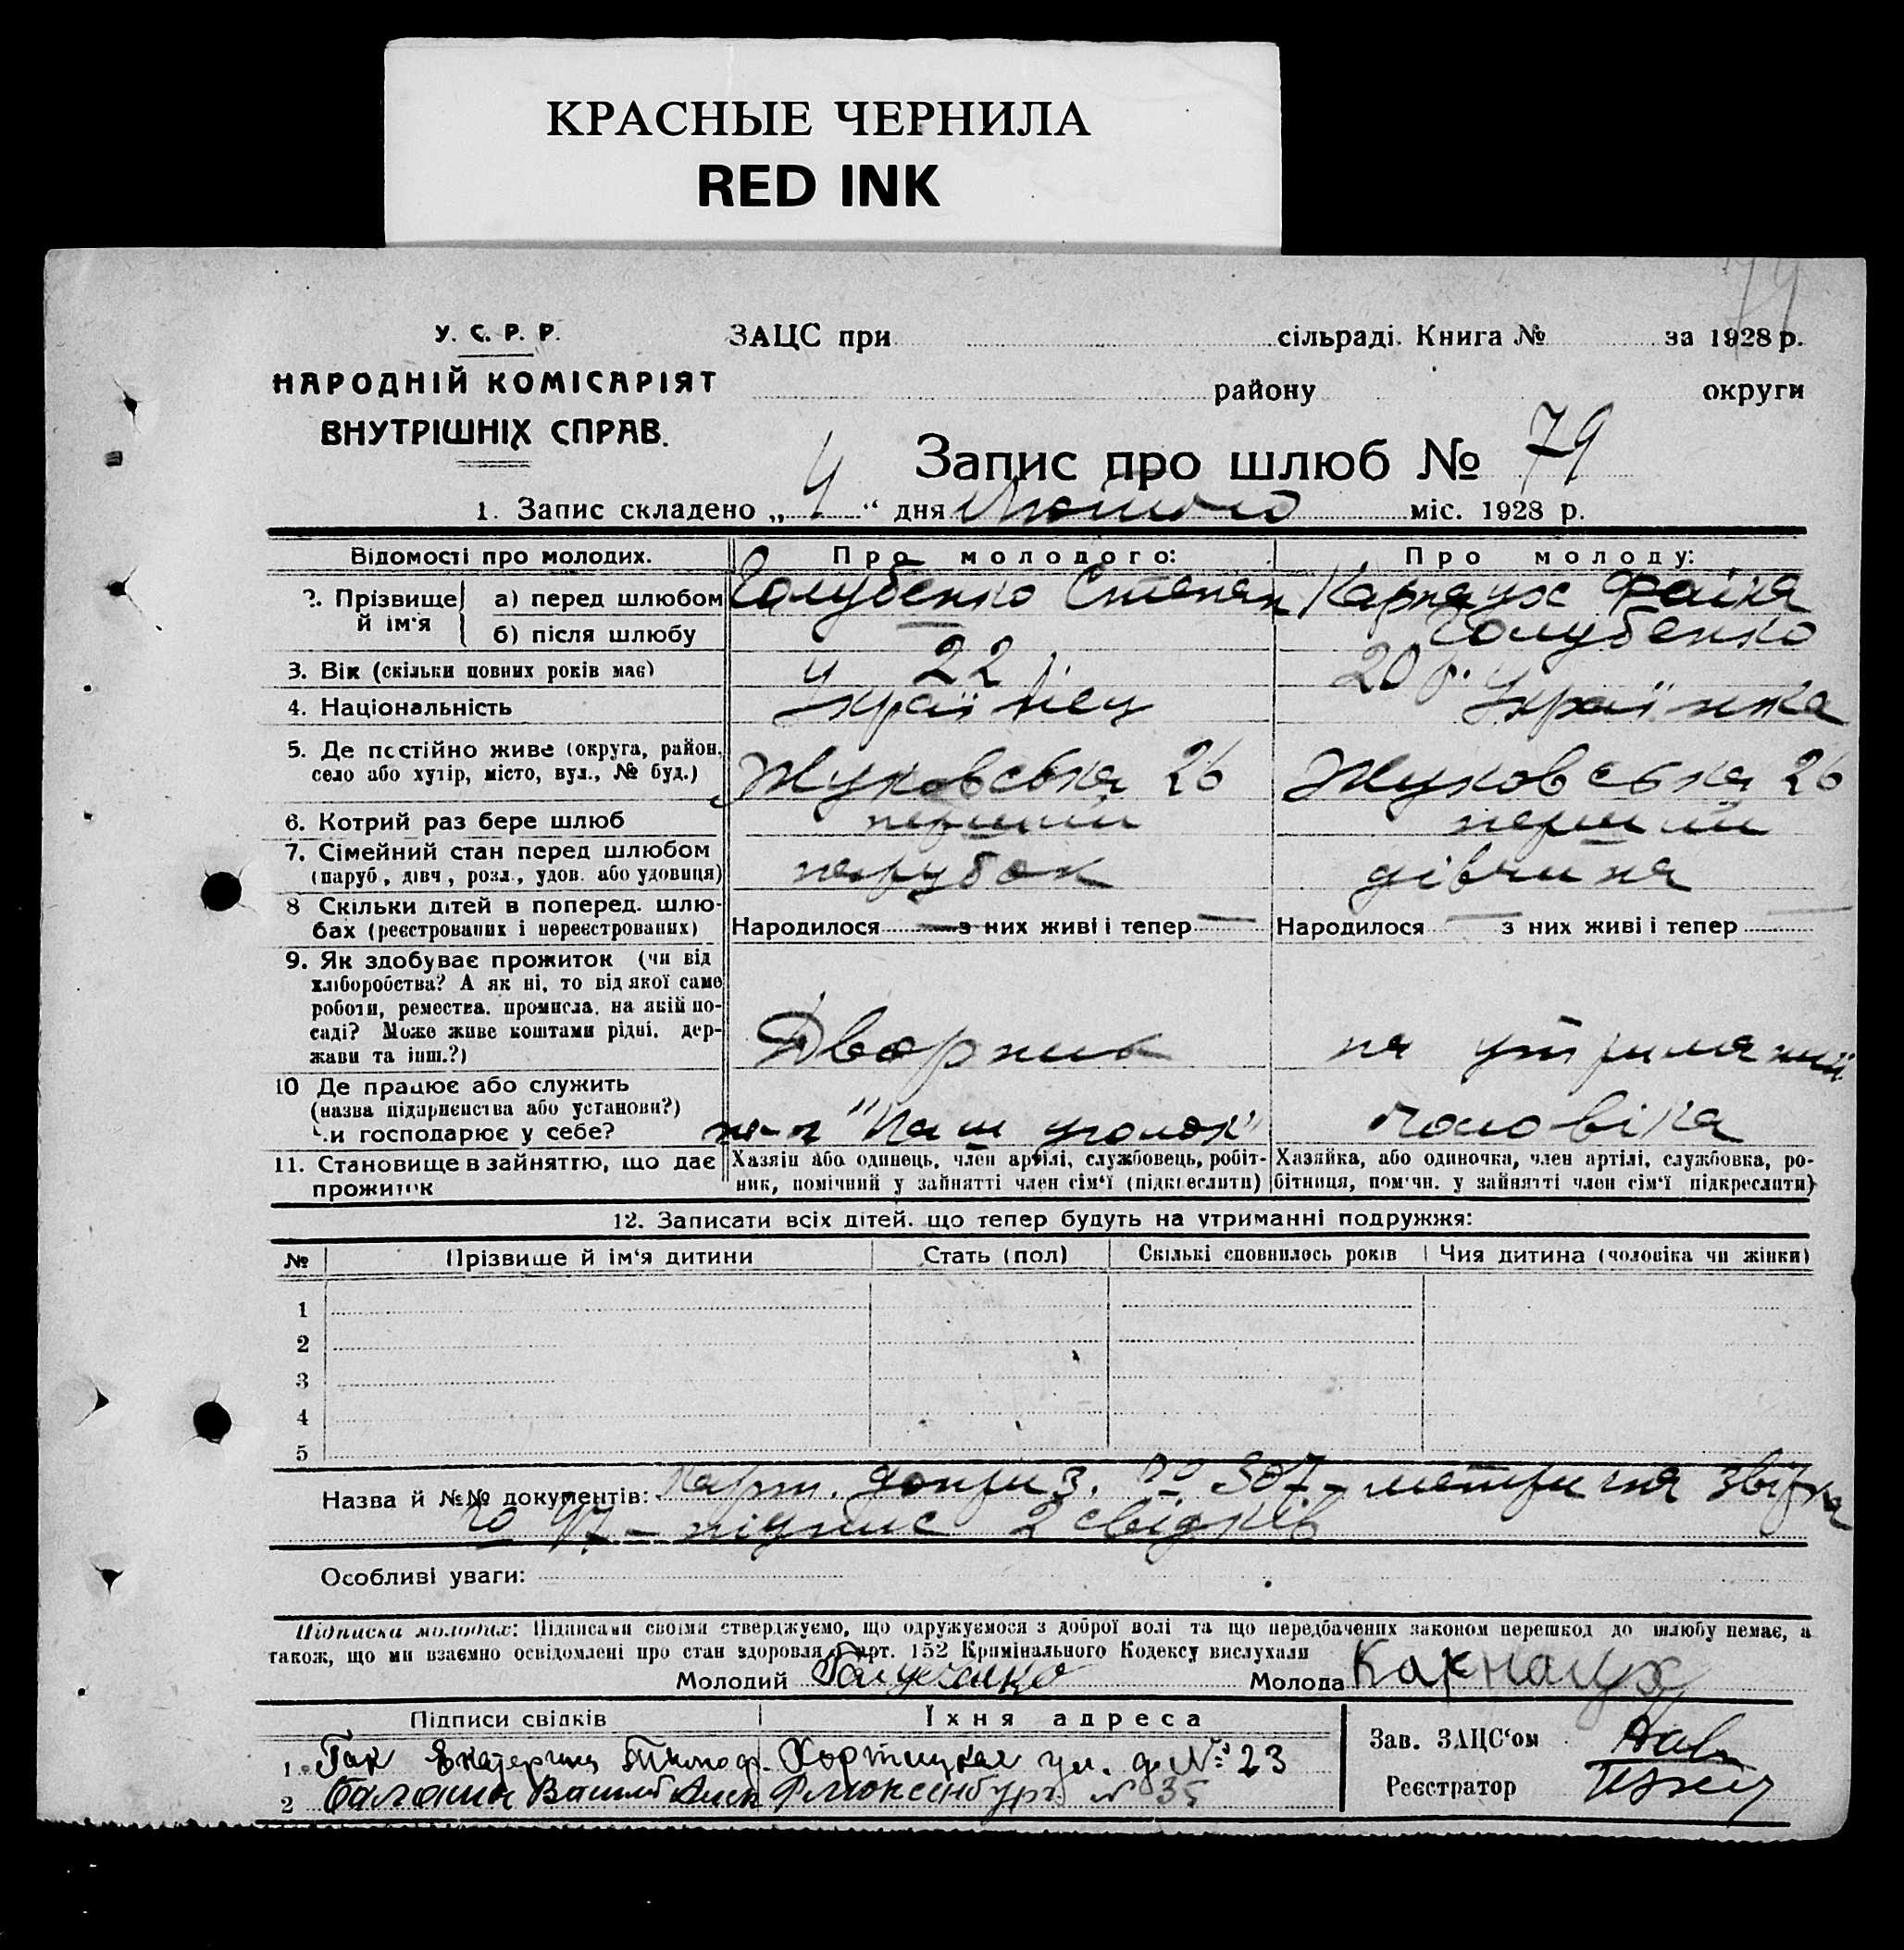 КРАСНЫЕ ЧЕРНИЛА
RED INK
У. С. Р. Р.
НАРОДНІЙ КОМІСАРІЯТ
ВНУТРІШНІХ СПРАВ.
ЗАЦС при сільраді. Книга № за 1928 р.
району округи
Запис про шлюб № 79
1. Запис складено „ 4 “ дня Лютого міс. 1928 р.
Відомості про молодих. Про молодого: Про молоду:
2. Прізвище й ім'я а) перед шлюбом Голубенко Степан Карнаух Фаіна
б) після шлюбу — Голубенко
3. Вік (скільки повних років має) 22 20 р.
4. Національність Українец Українка
5. Де постійно живе (округа, район, Жуковська 26 Жуковська 26
село або хутір, місто, вул., № буд.)
6. Котрий раз бере шлюб перший перший
7. Сімейний стан перед шлюбом парубок дівчина
(паруб., дівч., розл., удов. або удовиця)
8 Скільки дітей в поперед. шлю-
бах (реєстрованих і нереєстрованих) Народилося — з них живі і тепер — Народилося — з них живі і тепер —
9. Як здобуває прожиток (чи від
хліборобства? А як ні, то від якої саме
роботи, ремества, промисла, на якій по-
саді? Може живе коштами рідні, дер- Дворник на утриманні
жави та інш.?)
10 Де працює або служить
(назва підприємства або установи?) "Наш уголок" чоловіка
Чи господарює у себе?
11. Становище в зайняттю, що дає Хазяїн або одинець, член артілі, службовець, робіт- Хазяйка, або одиночка, член артілі, службовка, ро-
прожиток ник, помічний у зайнятті член сім'ї (підкреслити) бітниця, помічн. у зайнятті член сім'ї підкреслити)
12. Записати всіх дітей, що тепер будуть на утриманні подружжя:
№ Прізвище й ім'я дитини Стать (пол) Скількі сповнилось років Чия дитина (чоловіка чи жінки)
1
2
3
4
5
Назва й №№ документів: карт. допри з. № 307 – метрична звітка
№ 47 – підпис 2 свідків
Особливі уваги:
Підписка молодих: Підписами своїми стверджуємо, що одружуємося з доброї волі та що передбачених законом перешкод до шлюбу немає, а
також, що ми взаємно освідомлені про стан здоровля й арт. 152 Кримінального Кодексу вислухали
Молодий Молода Карнаух
Підписи свідків Їхня адреса
1 Гак Екатерина Тимоф. Хортицкая ул. д. №: 23
2 Василь № 35
Зав. ЗАЦС'ом
Реєстратор